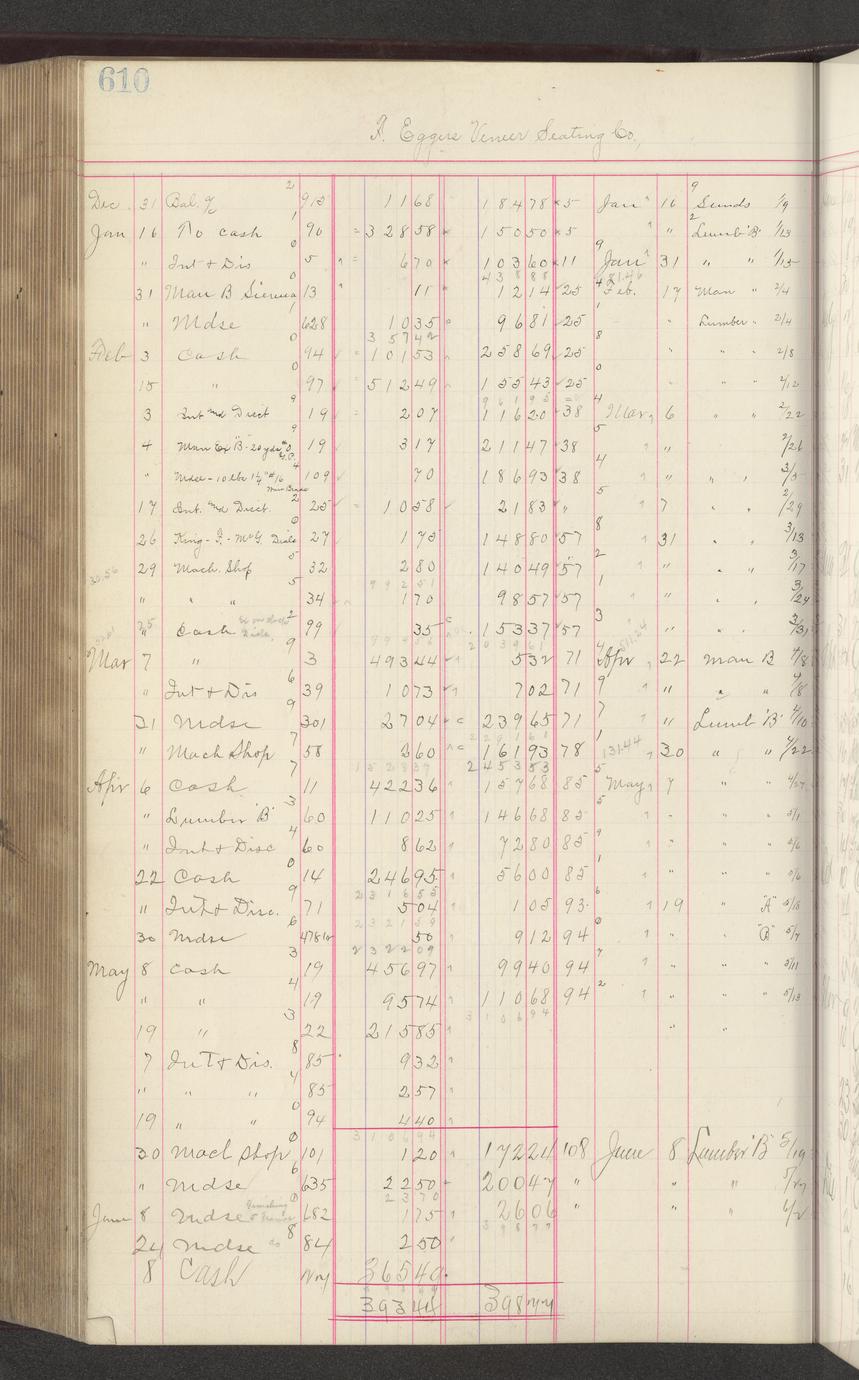 610
F. Eggers Veneer Seating Co.,
Dec. 31 Bal. % 915 1168 18478 5 Jan 16 Sunds 1/9
Jan 16 To cash 96 32858 15050 5 " " Lumb "B" 1/13
" Int + Dis 5 670 10360 11 Jan 31 " " 1/15
43888 48146
31 Man B Sienna 13 11 1214 25 Feb. 17 Man " 2/4
" Mdse 628 1035 9681 25 " Lumber " 2/4
35742
Feb 3 Cash 94 10153 25869 25 " " " 2/8
15 " 97 51249 15543 25 " " " 2/12
96195
3 Int and Disct 19 207 11620 38 Mar 6 " " 2/22
4 Man Ex "B" - 20 yds 19 317 21147 38 " 2/26
" Mdse - 10 lbs 1¼" #16 109 70 18693 38 " " " 3/5
17 Int. and Disct. 25 1058 2183 " 7 " " 2/29
26 King - F. - McG. Dials 27 175 14880 57 31 " " 3/13
29 Mach. Shop 32 280 14049 57 " " " 3/17
99251
" " " 34 170 9857 57 " " " 3/24
25 Cash 99 35 15337 57 " " " 3/31
99456 203961
Mar 7 " 3 49344 532 71 Apr 22 Man B 4/8
" Int + Dis 39 1073 702 71 " " " 4/8
31 Mdse 301 2704 23965 71 " Lumb "B" 4/10
" Mach Shop 58 260 16193 78 13144 30 " " 4/22
152837 245353
Apr 6 Cash 11 42236 15768 85 May 7 " " 4/27
" Lumber "B" 60 11025 14668 85 " " " 5/1
" Int + Disc 60 862 7280 85 " " " 5/6
22 Cash 14 24695 5600 85 " " " 5/6
231655
" Int + Disc. 71 504 105 93 19 " "A" 5/13
232159
30 Mdse 478 50 912 94 " "B" 5/7
232209
May 8 Cash 19 45697 9940 94 " " " 5/11
" " 19 9574 11068 94 " " " 5/13
310694
19 " 22 21585 " "
7 Int + Dis. 85 932
" " " 85 257
19 " " 94 440
310694
30 Mach Shop 101 120 17224 108 June 8 Lumber "B" 5/19
" Mdse 635 2250 20047 " " " 5/27
2370
June 8 Mdse 682 175 2606 " " " 6/2
39877
24 Mdse 84 250
8 Cash 27 36549
39344 39877